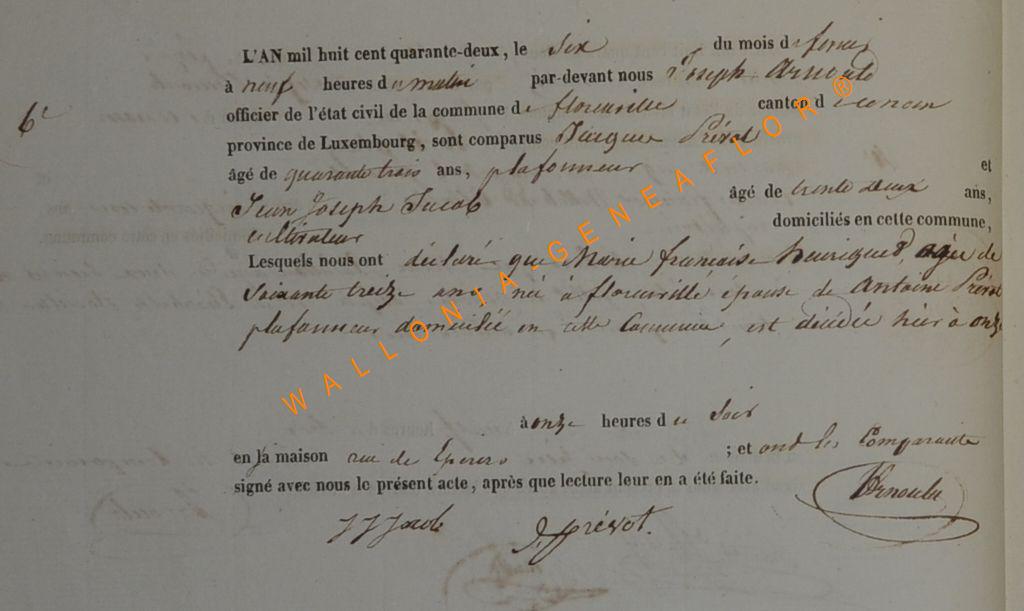 L'AN mil huit cent quarante-deux, le six du mois de
à neuf heures du matin par-devant nous Joseph Arnould
officier de l'état civil de la commune de florenville canton d
6e
province de Luxembourg, sont comparus Jacques Prévot
âgé de quarante trois ans, plafonneur et
Jean Joseph Jacob âgé de trente deux ans,
cultivateur domiciliés en cette commune,
Lesquels nous ont déclaré que Marie françoise henriquet agée de
soixante treize ans né à florenville épouse de Antoine Prévot
plafonneur domiciliée en cette Commune, est décédée hier à onze
à onze heures du Soir
en la maison rue de ; et ont les Comparants
signé avec nous le présent acte, après que lecture leur en a été faite.
JJ Jacob J. prévot. Arnould
WALLONIA-GENEAFLOR®